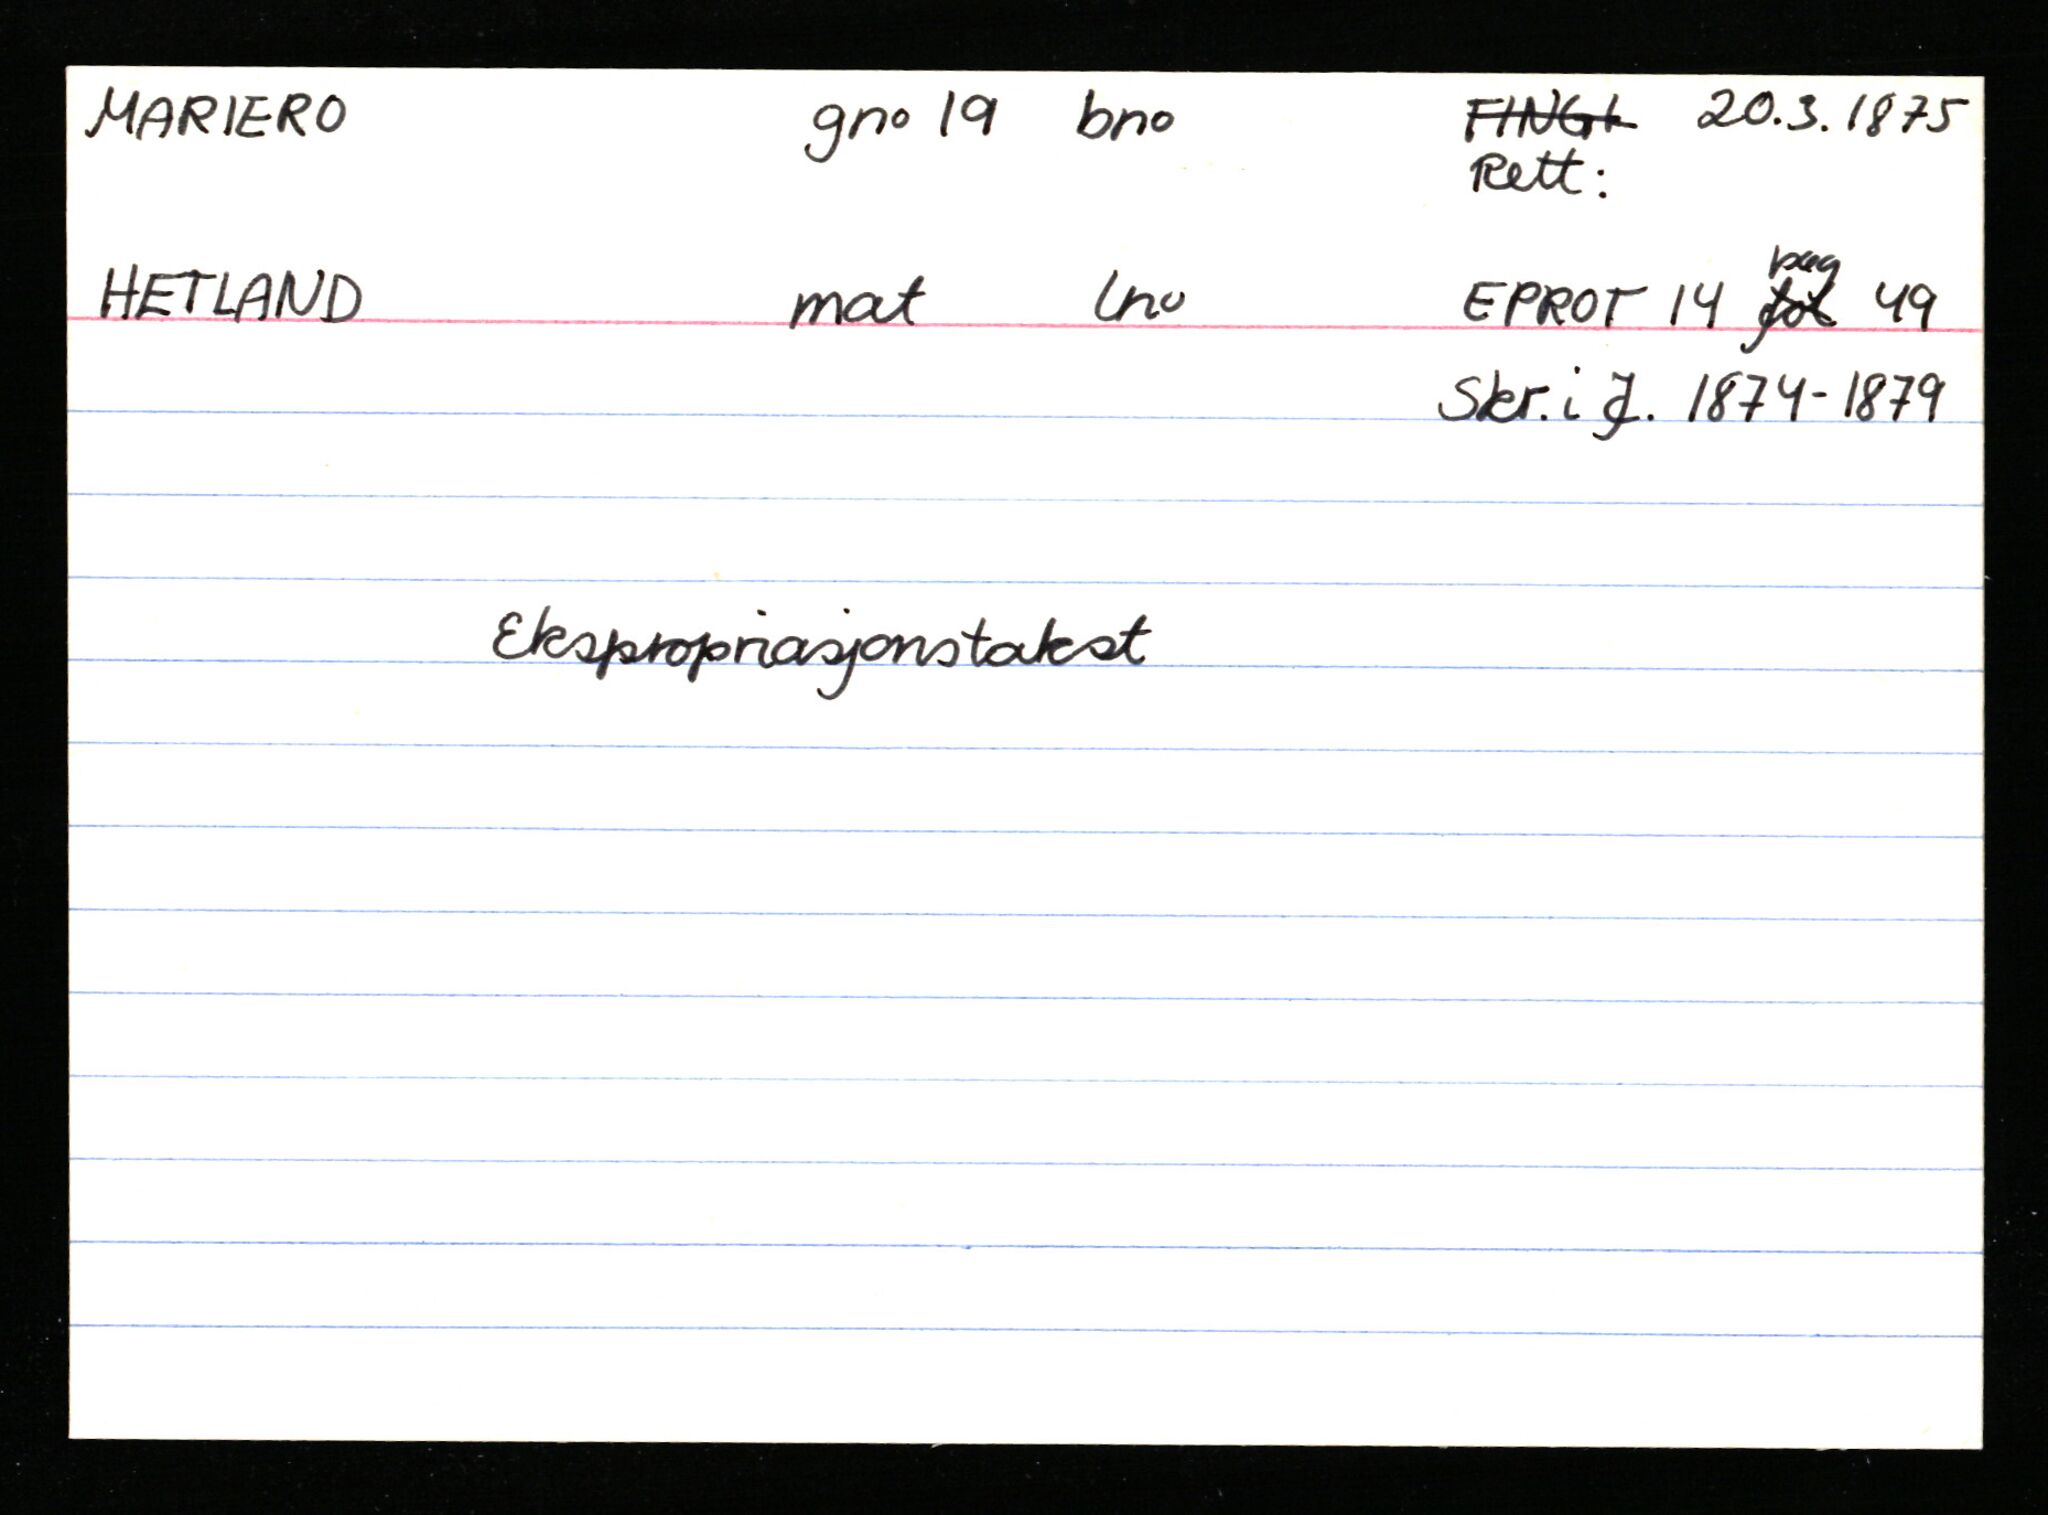 MARIERO gno 19 bno 20.3.1875
Rett:
HETLAND mat lno EPROT 14 pag 49
Skr. i J. 1874-1879
Ekspropriasjonstakst